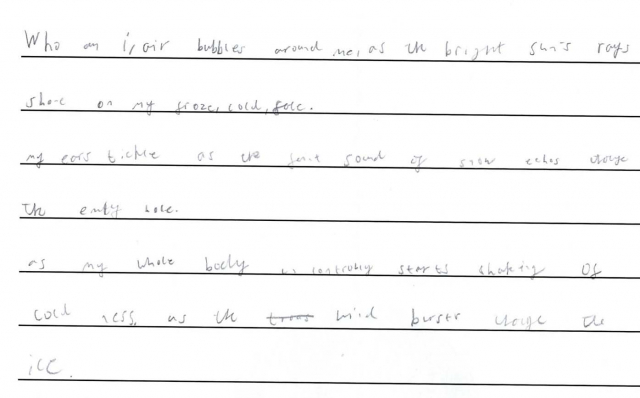 Who am i, air bubbles around me, as the bright sun's rays
shone on my froze, cold, face.
my ears tickle as the faint sound of snow echos
the empty hole.
as my whole body starts shaking of
cold ness, as the wind bursts the
ice.